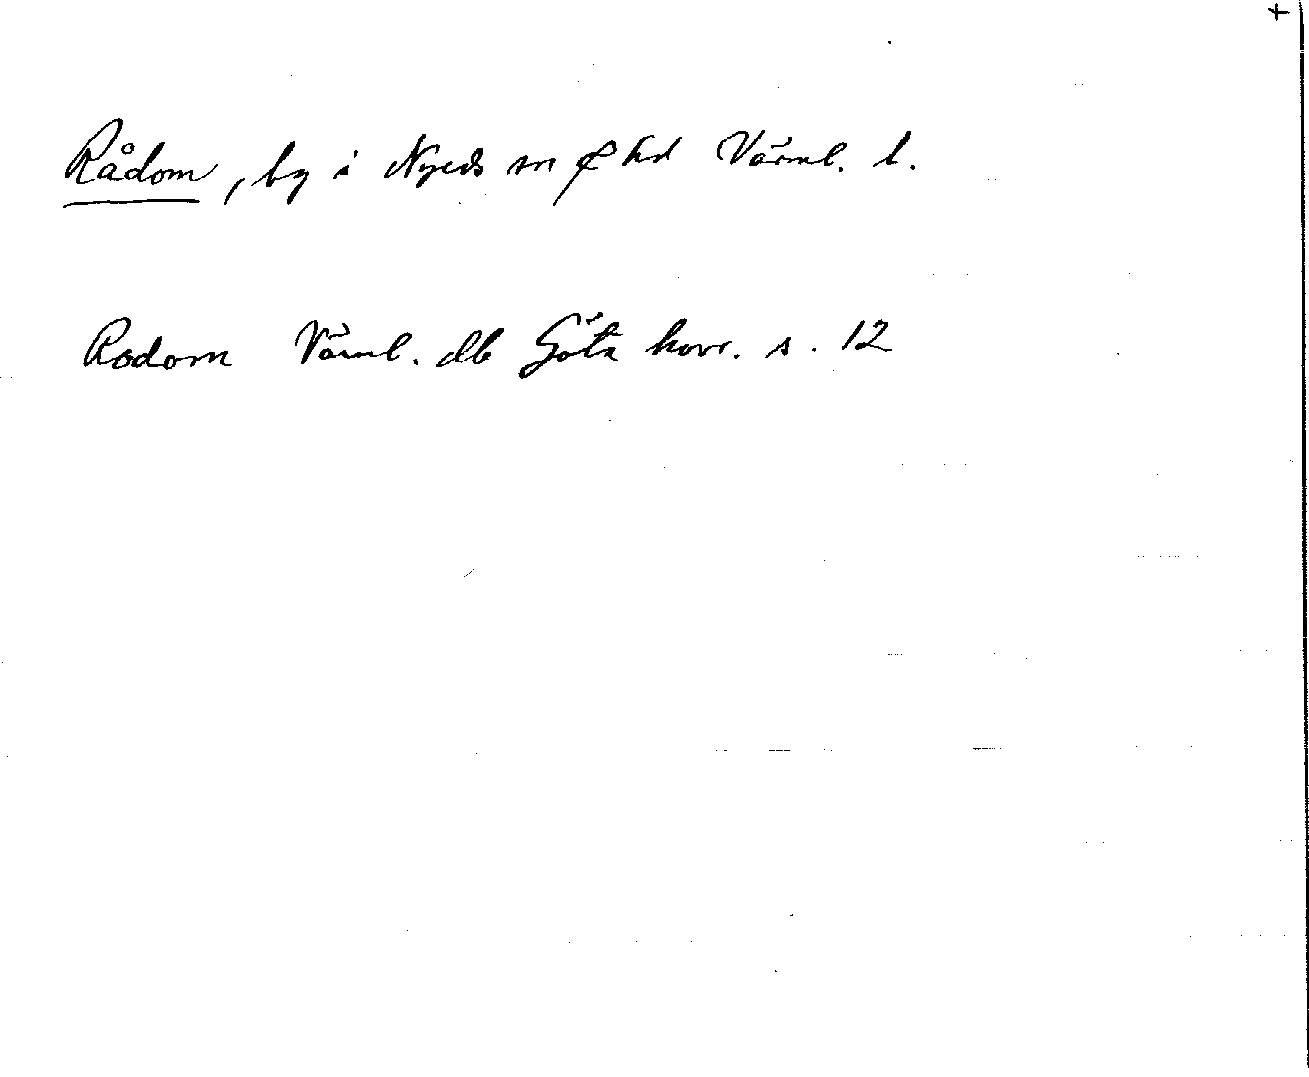 +
Rådom, by i Nyeds sn & hd Värml. l.
Rodom Värml. db Göta hovr. s. 12